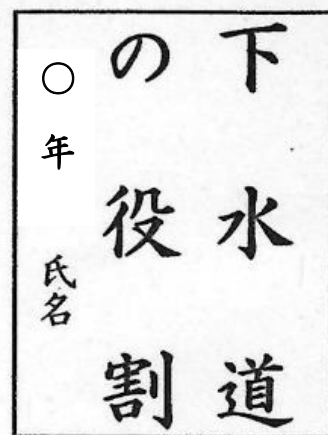 下水道
の役割
〇年
氏名